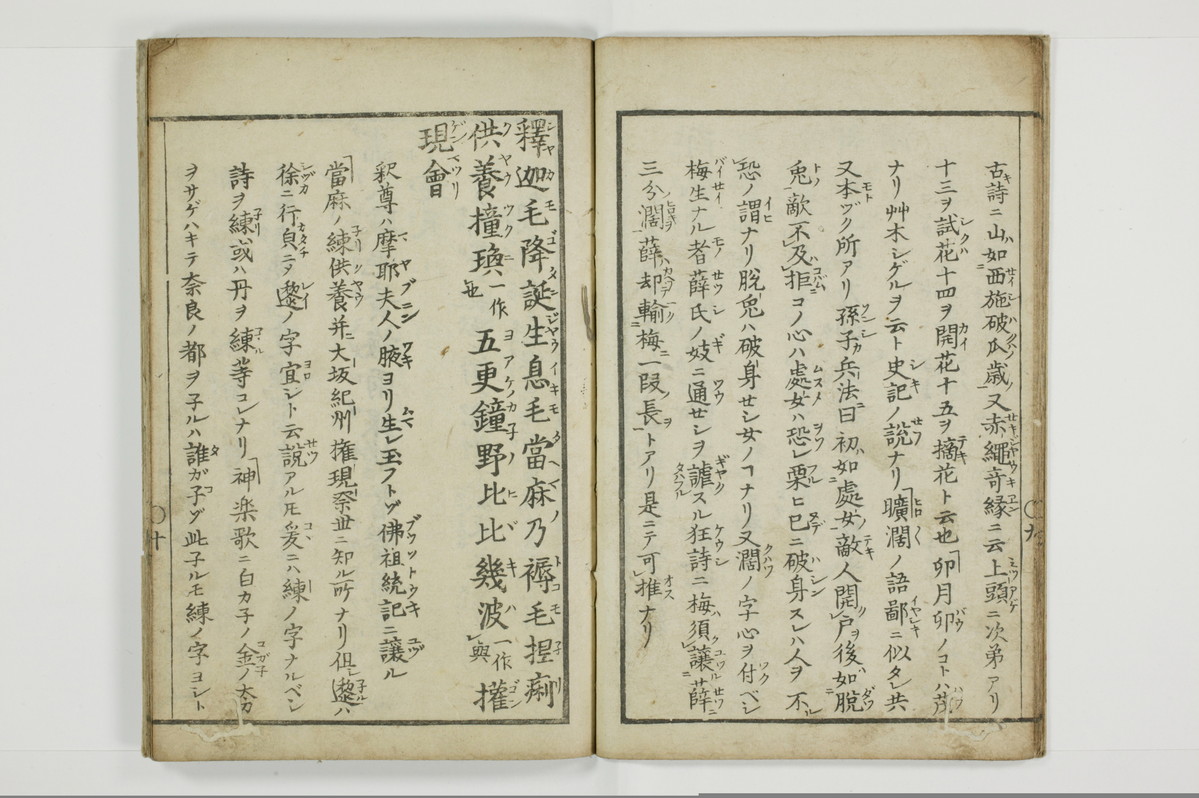 古詩ニ山如西施破瓜歳又赤繩奇縁ニ云上頭ニ次第アリ
十三ヲ試花十四ヲ開花十五ヲ摘花ト云也「卯月卯ノコトハ茂
ナリ艸木シゲルヲ云ト史記ノ説ナリ「曠濶ノ語鄙ニ似タレ共
又本ヅク所アリ孫子兵法曰初如處女敵人開戸後如脱
兎敵不及拒コノ心ハ處女ハ恐レ栗ヒ已ニ破身スレハ人ヲ不
恐ノ謂ナリ脱兎ハ破身セシ女ノヿナリ又濶ノ字心ヲ付ベシ
梅生ナル者薛氏ノ妓ニ通セシヲ謔スル狂詩ニ梅須讓薛
三分濶薛却輸梅一段長トアリ是ニテ可推ナリ
○九
釋迦毛降誕生息毛當麻乃褥毛捏痢
供養撞瑍一作 五更鐘野比比幾波一作與權
現會
釈尊ハ摩耶夫人ノ腋ヨリ生レ玉フトゾ佛祖統記ニ讓ル
「當麻ノ練供養并ニ大坂紀州權現祭世ニ知ル所ナリ但シ邌ハ
徐ニ行皃ニヲ邌ノ字宜シト云説アルモ爰ニハ練ノ字ナルベシ
詩ヲ練或ハ丹ヲ練等コレナリ「神楽歌ニ白カ子ノ金ノ太刀
ヲサゲハキテ奈良ノ都ヲ子ルハ誰ガ子ゾ此子ルモ練ノ字ヨシト
○十